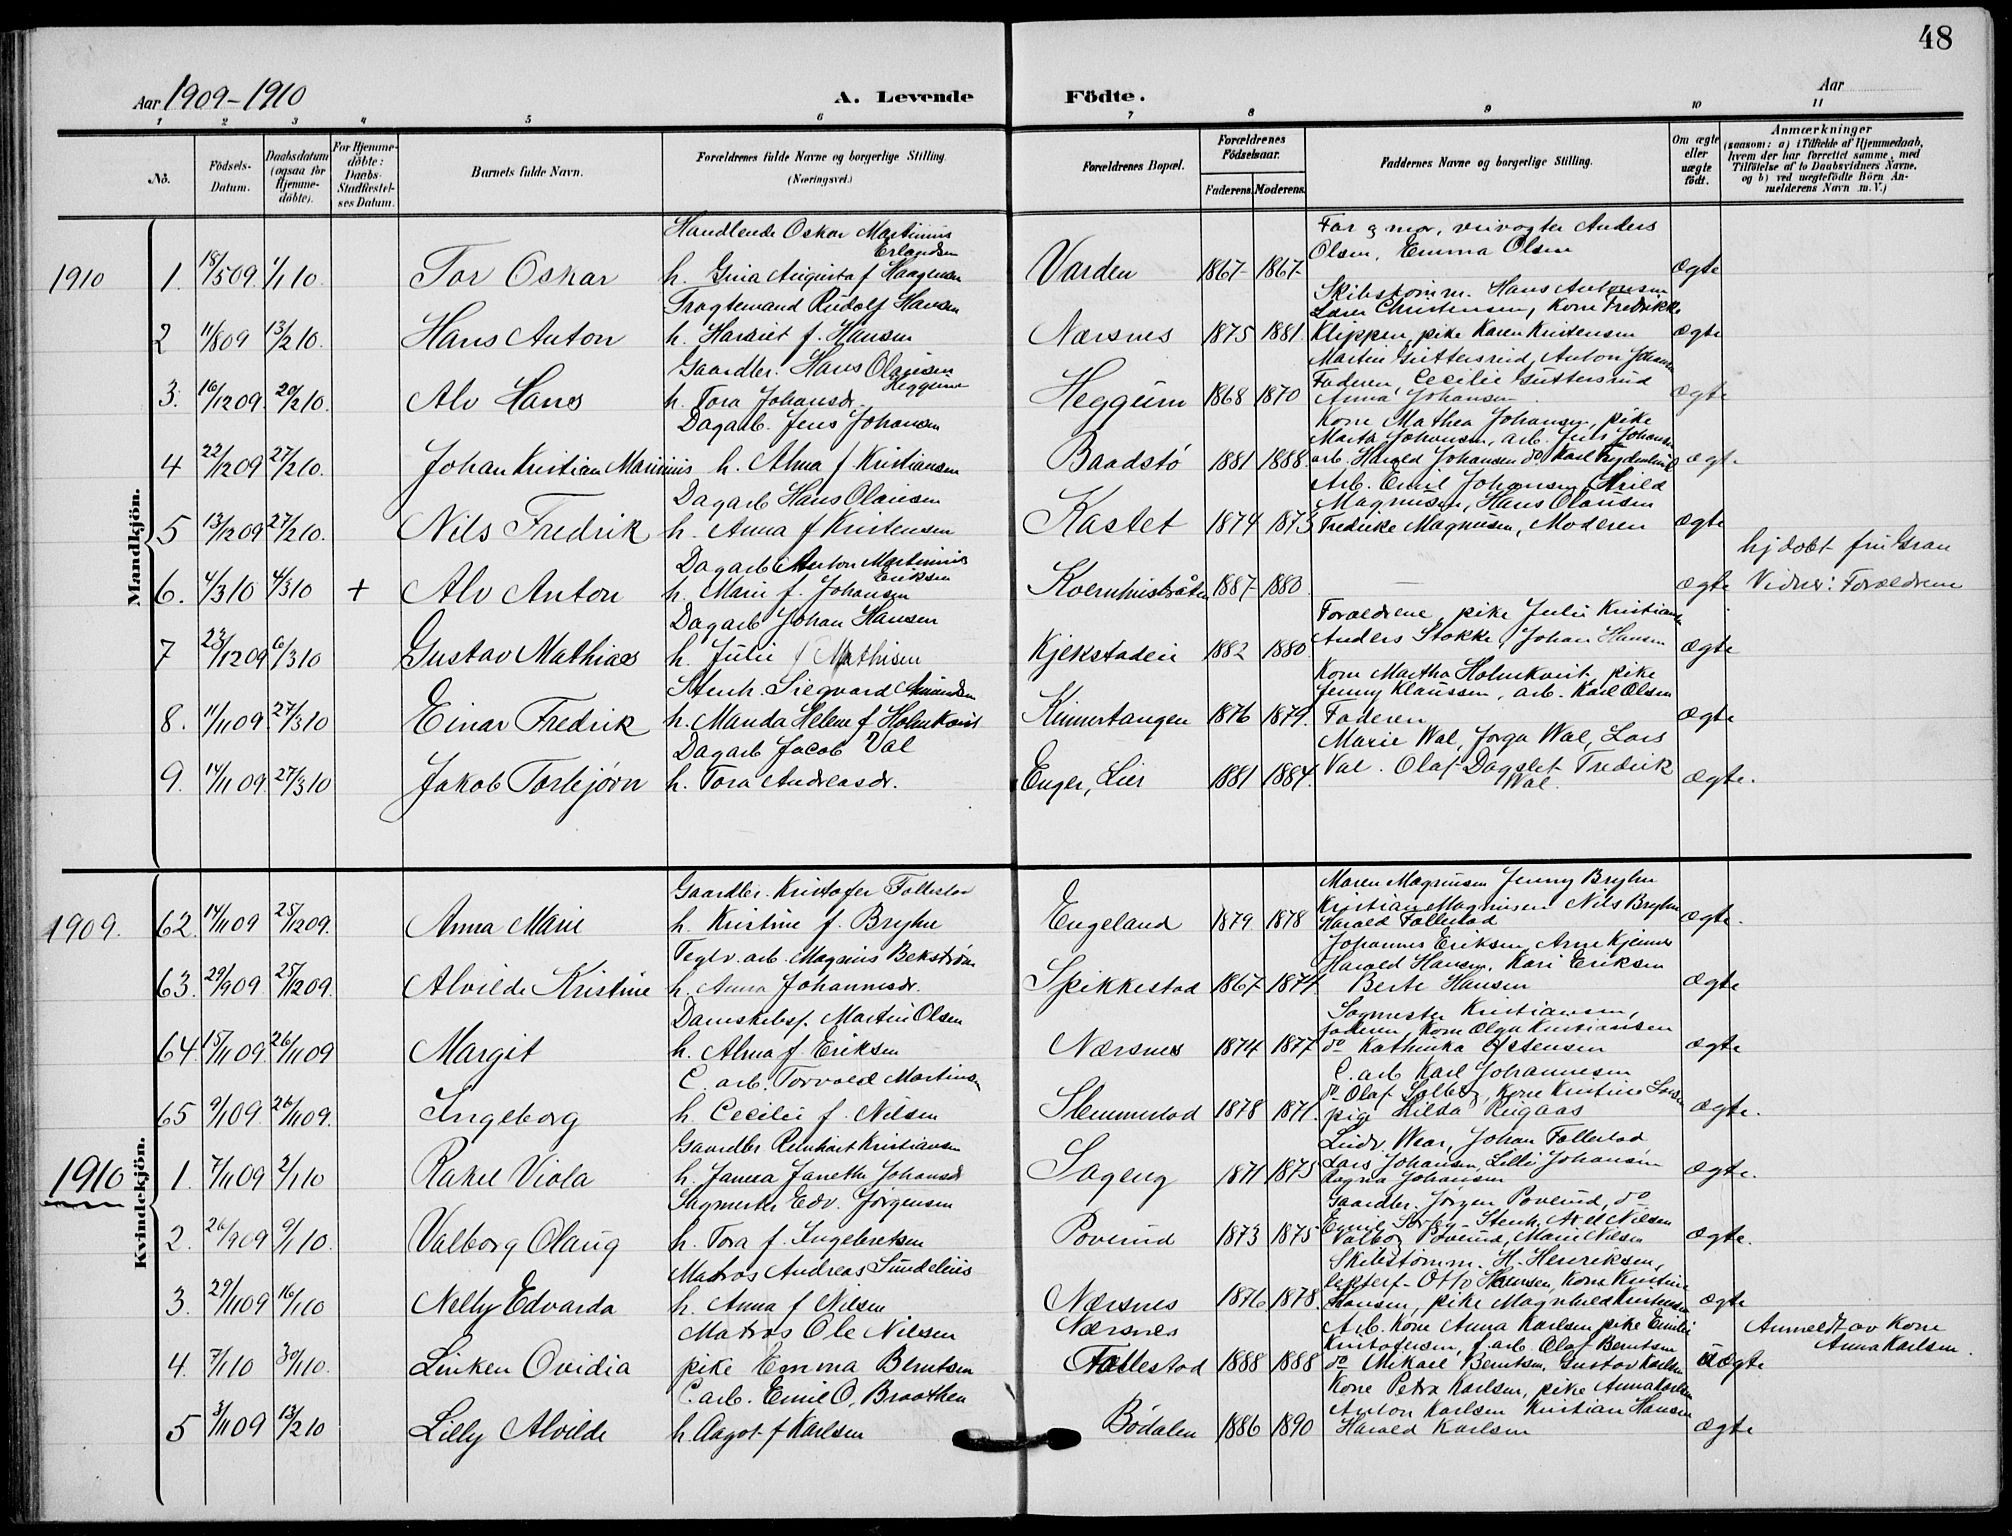 48
Aar 1909-1910
A. Levende Födte.
Aar
1 2 3 4 5 6 7 8 9 10 11
No.
Födsels-Datum.
Daabsdatum (ogsaa for Hjemme-döbte).
For Hjemme-döbte: Daabs-Stadfæstel-ses Datum.
Barnets fulde Navn.
Forældrenes fulde Navne og borgerlige Stilling. (Næringsvei.)
Forældrenes Bopæl.
Forældrenes Födselsaar.
Faderens. Moderens.
Faddernes Navne og borgerlige Stilling.
Om ægte eller uægte födt.
Anmærkninger
(saasom: a) i Tilfælde af Hjemmedaab,
hvem der har forrettet samme, med
Tilföielse af to Daabsvidners Navne.
og b) ved uægtefödte Börn An-
melderens Navn m. V.)
Mandkjön.
1910
Handlende Oskar Martinius Erlandsen
1. 18/5 09 1/1 10. Tor Oskar h. Gina Augusta f Haagensen Varden 1867 1867 ægte
Far og mor, Anders
Olsen, Emma Olsen
Fragtemand Rudolf Hansen
2 11/8 09 13/2 10. Hans Anton h. Harriet f. Hansen Nærsnes 1875 1881 ægte
Skibstømm. Hans Antonsen
Christensen, Kone Fredrikke
Klippen, pike Karen Kristensen
Gaardbr. Hans Olausen Heggum
3. 16/12 09 20/2 10. Alv Hans h. Tora Johansdr. Heggum 1868 1870 ægte
Martin Guttersrud, Anton Johansen
Faderen, Cecilie Guttersrud
Anna Johansen
Dagarb. Jens Johansen
4 22/12 09 27/2 10. Johan Kristian Marinius h. Alma f Kristiansen Baadstø 1881 1888 ægte
Kone Mathea Johansen, pike
Marta Johansen, arb. Jens Johansen
arb. Harald Johansen do Karl
Dagarb Hans Olausen
5 13/12 09 27/2 10. Nils Fredrik h. Anna f Kristensen Kastet 1874 1873 ægte
Arb. Emil Johansen,
Magnusen, Hans Olausen
Fredrike Magnusen, Moderen
Dagarb Anton Martinius Eriksen
6. 4/3 10 4/3 10 + Alv Anton h. Marie f. Johansen 1887 1880 — ægte
hj døbt fru Gran
Vidner: Forældrene
Dagarb Johan Hansen
7 23/12 09 6/3 10 Gustav Mathias h. Julie f Mathisen Kjekstadeie 1882 1880 ægte
Forældrene, pike Julie Kristiansen
Anders Stokke, Johan Hansen
Stenh. Sigvard Amundsen
8. 11/11 09 27/3 10 Einar Fredrik h. Manda Helene f Holmkvist Kinnertangen 1876 1879 ægte
Kone Martha Holmkvist, pike
Jenny Klaussen, arb. Karl Olsen
Faderen
Dagarb Jacob Val
9. 14/11 09 27/3 10 Jakob Torbjørn h. Tora Andreasdr. Enger, Lier 1881 1884. ægte.
Marie Wal, Jorga Wal, Lars
Val. Olaf Dagslet Fredrik
Wal.
Kvindekjön.
1909.
Gaardbr. Kristofer Follestad
62. 14/11 09 25/12 09. Anna Marie h. Kristine f. Bryhn Engeland 1879 1878 ægte.
Maren Magnusen Jenny Bryhn
Kristian Magnusen Nils Bryhn
Harald Follestad
Teglv. arb. Magnus Bekstrøm
63. 29/9 09 25/12 09. Alvilde Kristine h. Anna Johannesdr. Spikkestad 1867 1874 ægte
Johannes Eriksen, Arne Kjenner
Harald Hansen. Kari Eriksen
Berte Hansen
Damskibsf. Martin Olsen
64 15/11 09 26/11 09 Margit h. Alma f. Eriksen Nærsnes 1874 1877 ægte
Sagmester Kristiansen,
faderen, Kone Olga Kristiansen
do Kathinka
C. arb. Torvald Martinsen
65 9/1 09 26/11 09. Ingeborg h. Cecilie f. Nilsen Slemmestad 1878 1871. ægte.
C. arb Karl Johannesen
do Olaf Solberg, Kone Kristine Larsen
pige Hilda
1910
Gaardbr Reinhart Kristiansen
1. 7/11 09 2/1 10 Rakel Viola h. Janna Janethe Johansdr Sageng 1871 1875 ægte.
Johan Follestad
Lars Johansen, Lilli Johansen
Ragna Johansen
Sagmester Edv. Jørgensen
2. 26/9 09 9/1 10. Valborg Olaug h. Tora f. Ingebretsen Poverud 1873 1875 ægte.
Gaardbr. Jørgen Poverud, do
Emil Stenh. Axel Nilsen
Valborg Poverud, Marie Nilsen
Matros Andreas Sundelius
3. 29/11 09 16/1 10 Nelly Edvarda h. Anna f Nilsen Nærsnes 1876 1878. ægte
Skibstømm. H. Henriksen,
Otto Hansen, Kone Kristine
Hansen, pike Magnhild Kristensen
Matros Ole Nilsen Nærsnes
4. 7/1 10 30/1 10. Linken Ovidia pike Emma Berntsen Follestad 1888 1888 uægte
Arb. Kone Anna Karlsen, pike Emilie
Kristofersen, f. arb. Olaf Berntsen
do Mikael Berntsen, Gustav Karlsen
Anmeldt av Kone
Anna Karlsen.
C. arb. Emil O. Braathen
5 3/11 09 13/2 10 Lilly Alvilde h. Aagot f Karlsen Bødalen 1886 1890 ægte
Kone Petra Karlsen, pike Anna Karlsen
Anton Karlsen Kristian Hansen
Harald Karlsen